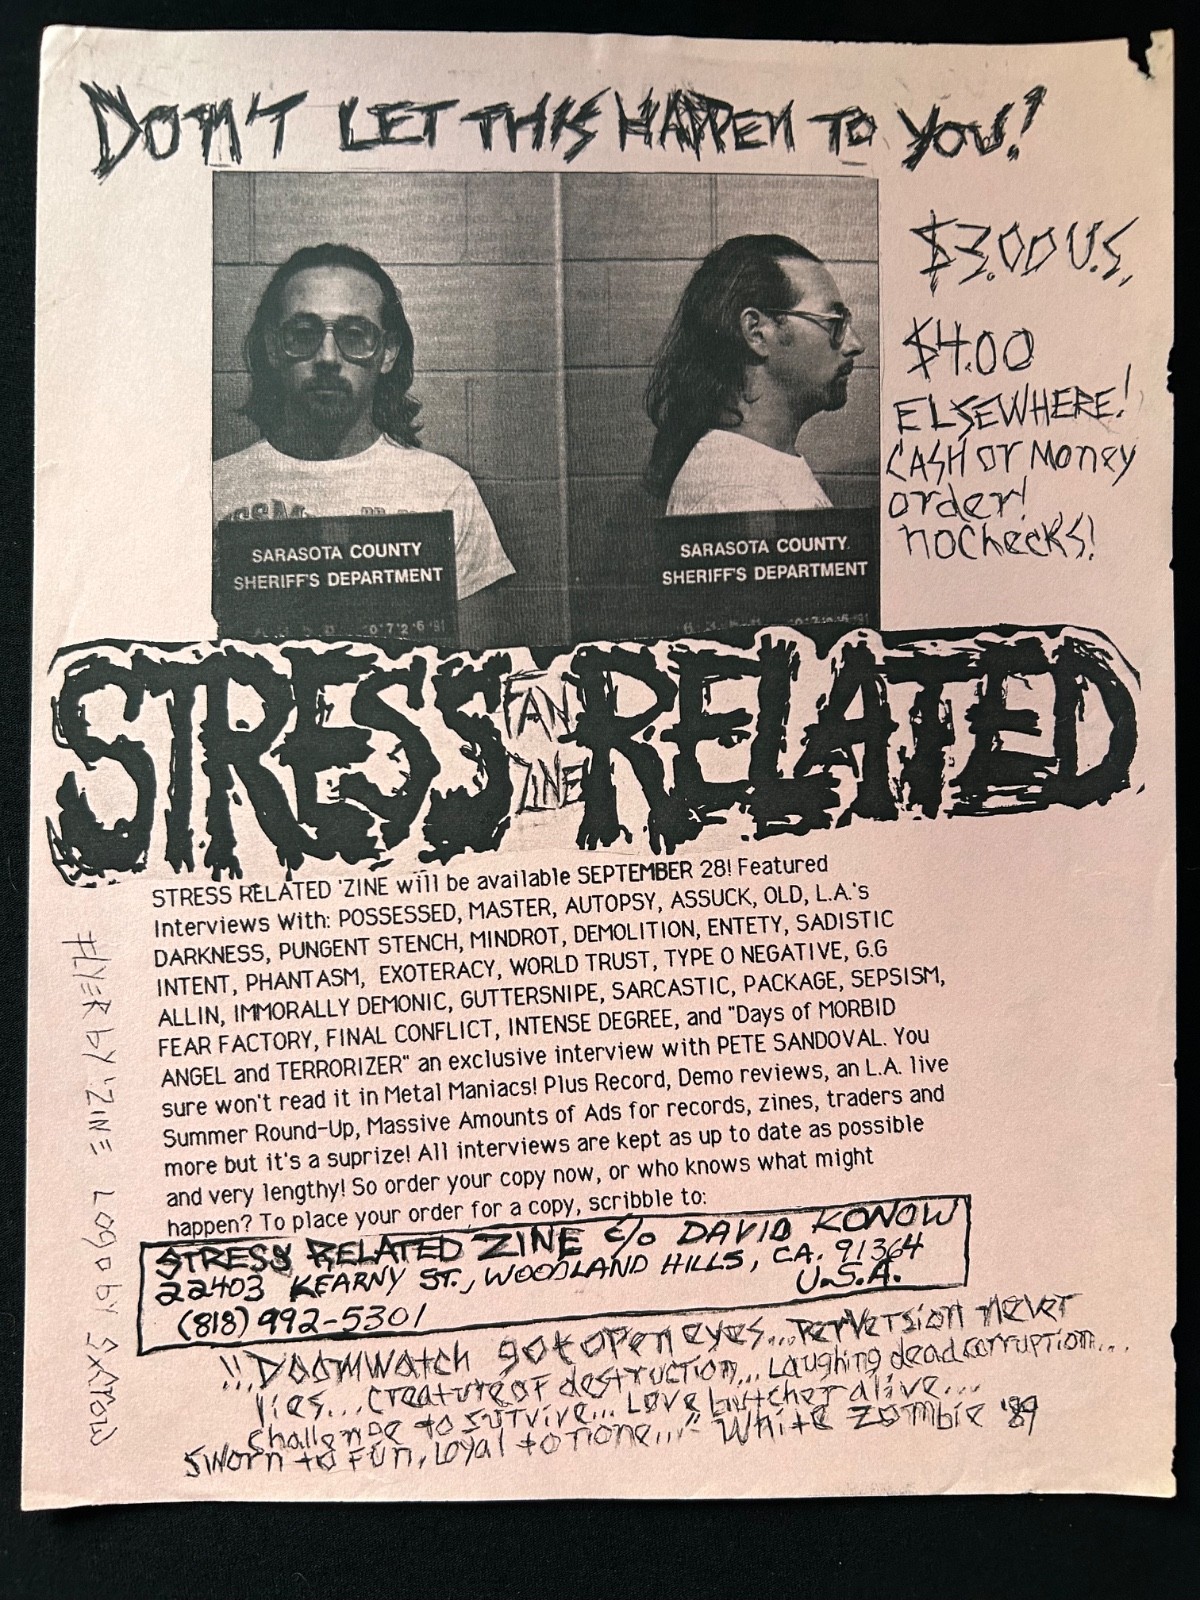 DON'T LET THIS HAPPEN TO YOU!
$3.00 U.S.
$4.00
ELSEWHERE!
CASH or Money
order!
no checks!
SARASOTA COUNTY
SHERIFF'S DEPARTMENT
SARASOTA COUNTY
SHERIFF'S DEPARTMENT
STRESS FAN ZINE! RELATED
STRESS RELATED 'ZINE will be available SEPTEMBER 28! Featured
Interviews With: POSSESSED, MASTER, AUTOPSY, ASSUCK, OLD, L.A.'s
DARKNESS, PUNGENT STENCH, MINDROT, DEMOLITION, ENTETY, SADISTIC
INTENT, PHANTASM, EXOTERACY, WORLD TRUST, TYPE O NEGATIVE, G.G
ALLIN, IMMORALLY DEMONIC, GUTTERSNIPE, SARCASTIC, PACKAGE, SEPSISM,
FEAR FACTORY, FINAL CONFLICT, INTENSE DEGREE, and "Days of MORBID
ANGEL and TERRORIZER" an exclusive interview with PETE SANDOVAL. You
sure won't read it in Metal Maniacs! Plus Record, Demo reviews, an L.A. live
Summer Round-Up, Massive Amounts of Ads for records, zines, traders and
more but it's a suprize! All interviews are kept as up to date as possible
and very lengthy! So order your copy now, or who knows what might
happen? To place your order for a copy, scribble to:
STRESS RELATED ZINE c/o DAVID KONOW
22403 KEARNY ST., WOODLAND HILLS, CA. 91364
U.S.A.
(818) 992-5301
"Doomwatch got open eyes... Perversion never
lies... creature of destruction... Laughing dead corruption...
challenge to survive... Love butcher alive...
sworn to fun, loyal to none..." White Zombie '89
FLYER by 'ZINE LOGO by SXATOLD